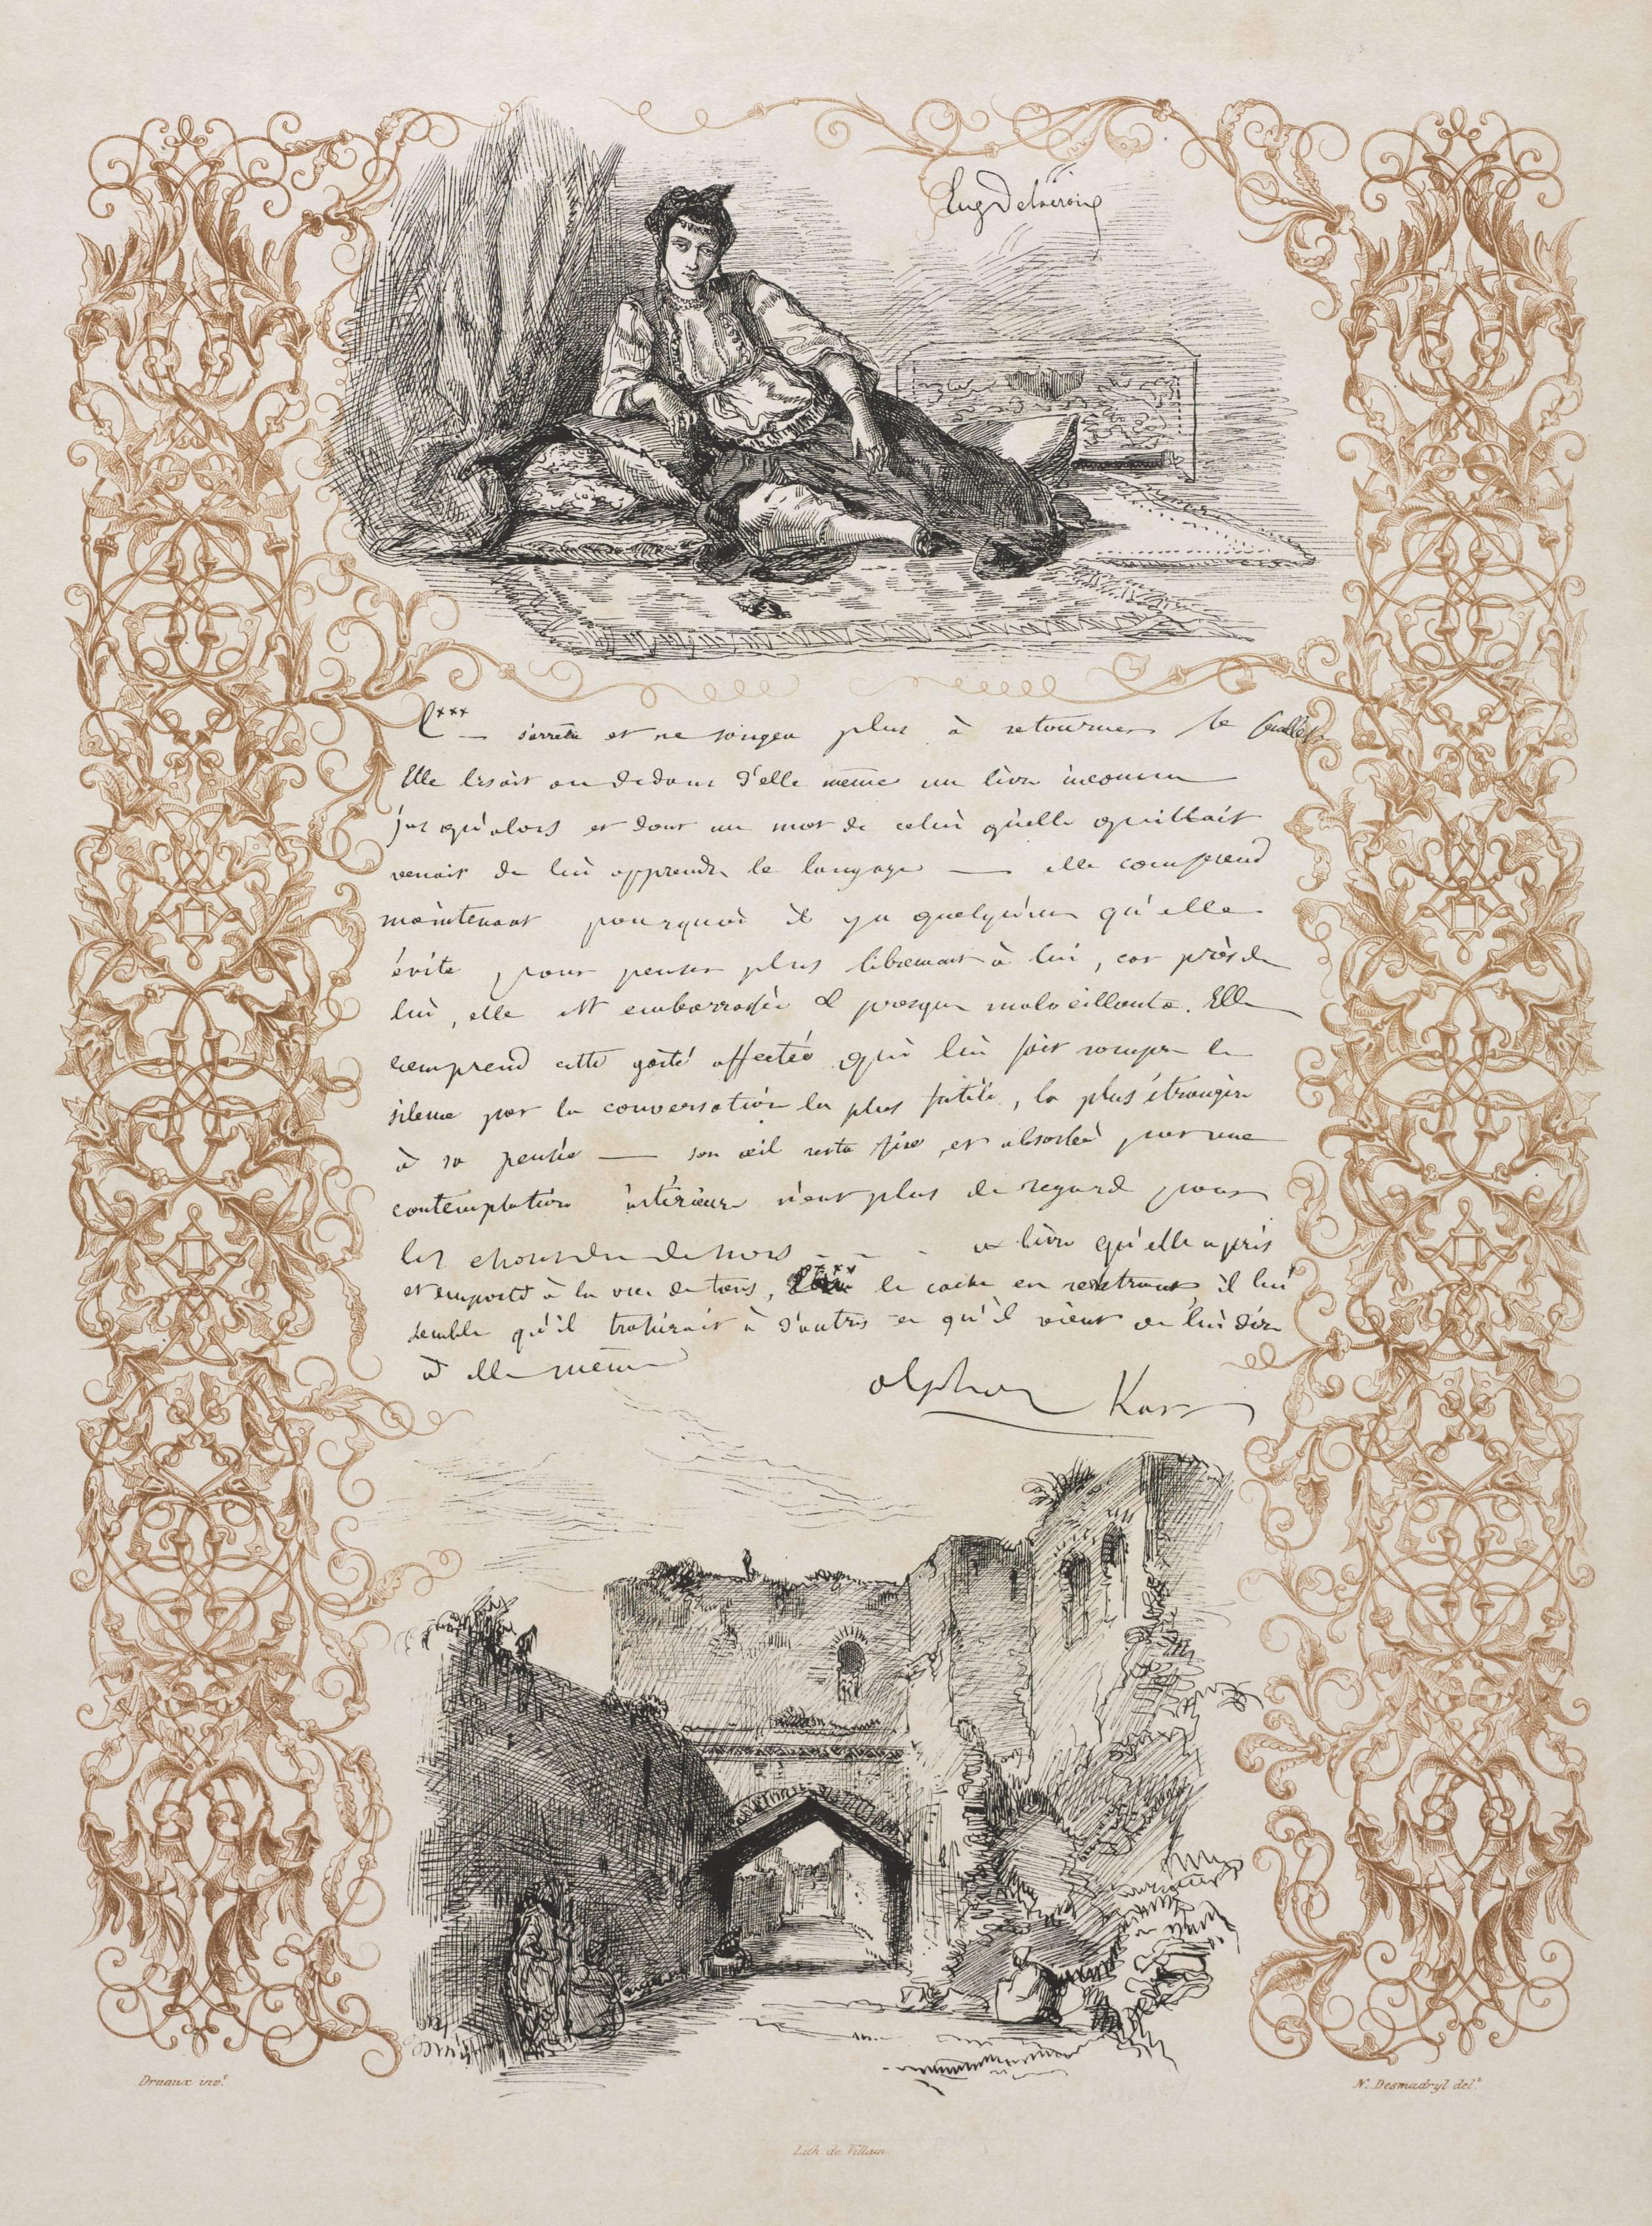 Eug Delacroix
C*** — s'arrêta et ne songea plus à retourner le feuillet
Elle lisait au dedans d'elle même un livre inconnu
jusqu'alors et dont un mot de celui qu'elle quittait
venait de lui apprendre le langage — elle comprend
maintenant pourquoi il y a quelqu'un qu'elle
évite pour penser plus librement à lui, car près de
lui, elle est embarrassée et presque malveillante. Elle
comprend cette gaité affectée qui lui fait rompre le
silence par la conversation la plus futile, la plus étrangère
à sa pensée — son œil reste fixe et absorbé par une
contemplation intérieure n'eut plus de regard pour
les choses du dehors - - - ce livre qu'elle a pris
et emporté à la vue de tous, le cache en rentrant, il lui
semble qu'il trahirait à d'autres ce qu'il vient de lui dire
à elle même
alphonse Karr
Druaux inv.t
N. Desmadryl del.t
Lith. de Villain.